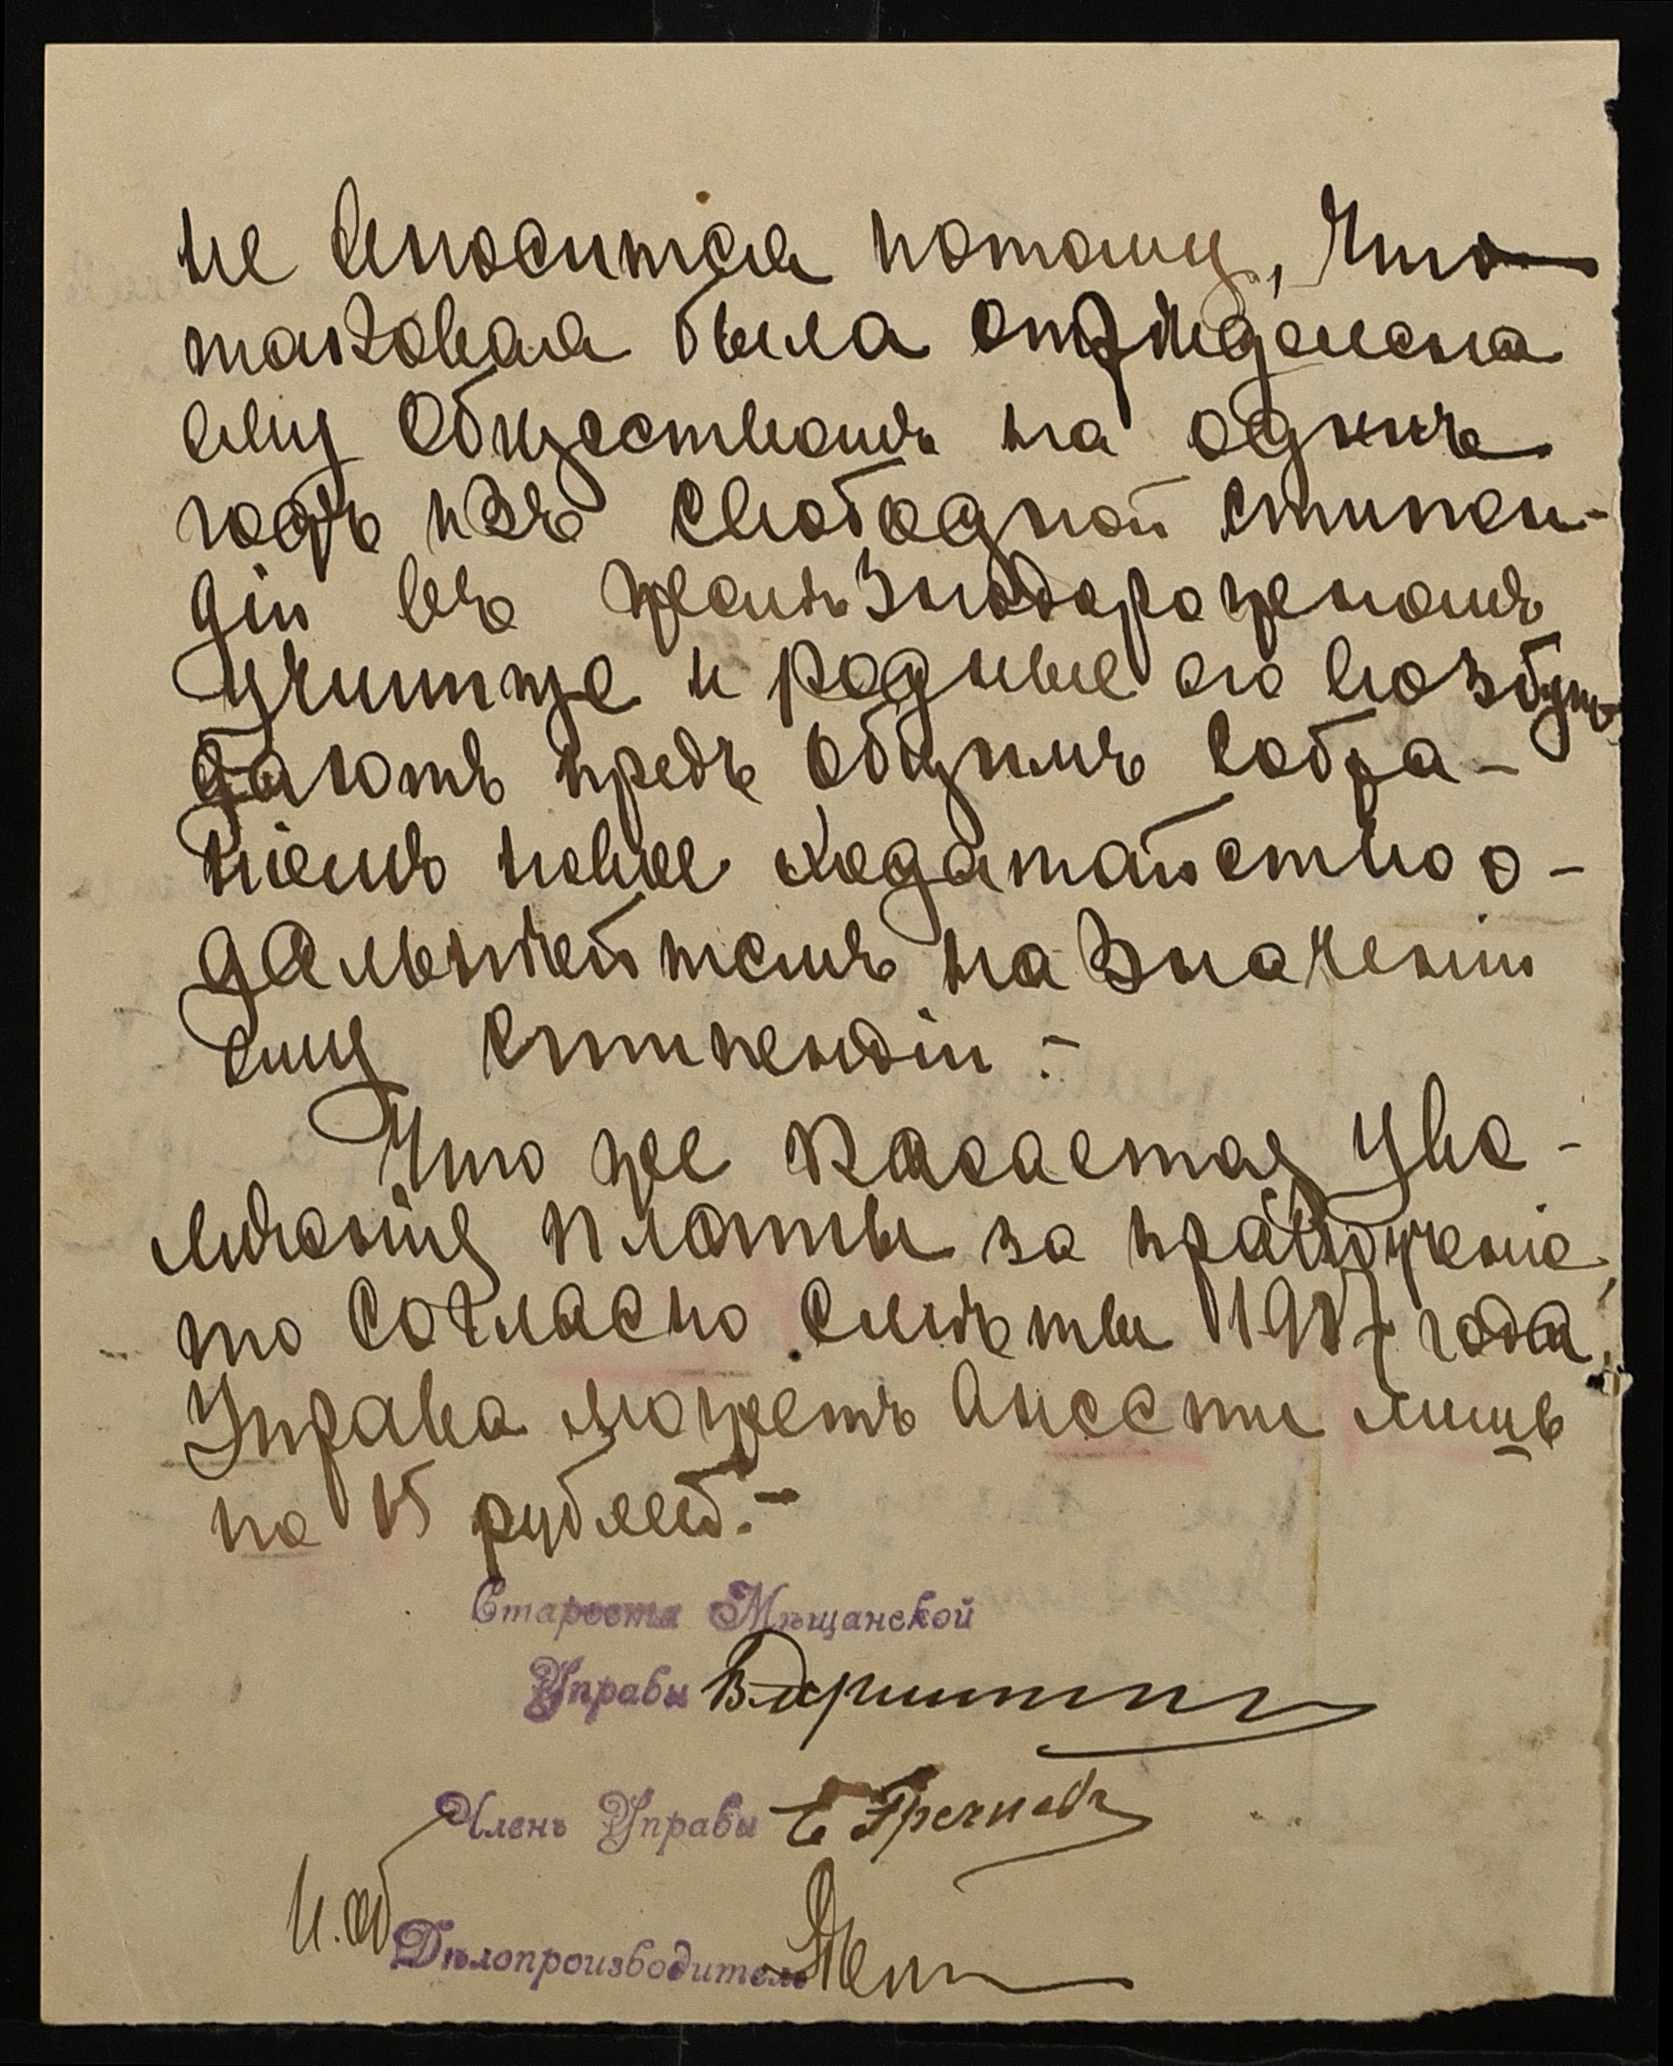 не вносится потому, что
таковая была отпущена
ему Обществомъ на одинъ
годъ изъ свободной стипен-
діи въ желѣзнодорожномъ
училище и родные его возбуж
даютъ предъ Общимъ Собра-
ніемъ новое ходатайство о-
дальнейшемъ назначеніи
ему стипендіи.-
Что же касается уве-
личенія платы за правоученіе,
то согласно смѣты 1907 года,
Управа можетъ внести лишь
по 15 рублей.-
Староста Мѣщанской
Управы
Членъ Управы Е Гречневъ
И. об
Дѣлопроизводитель